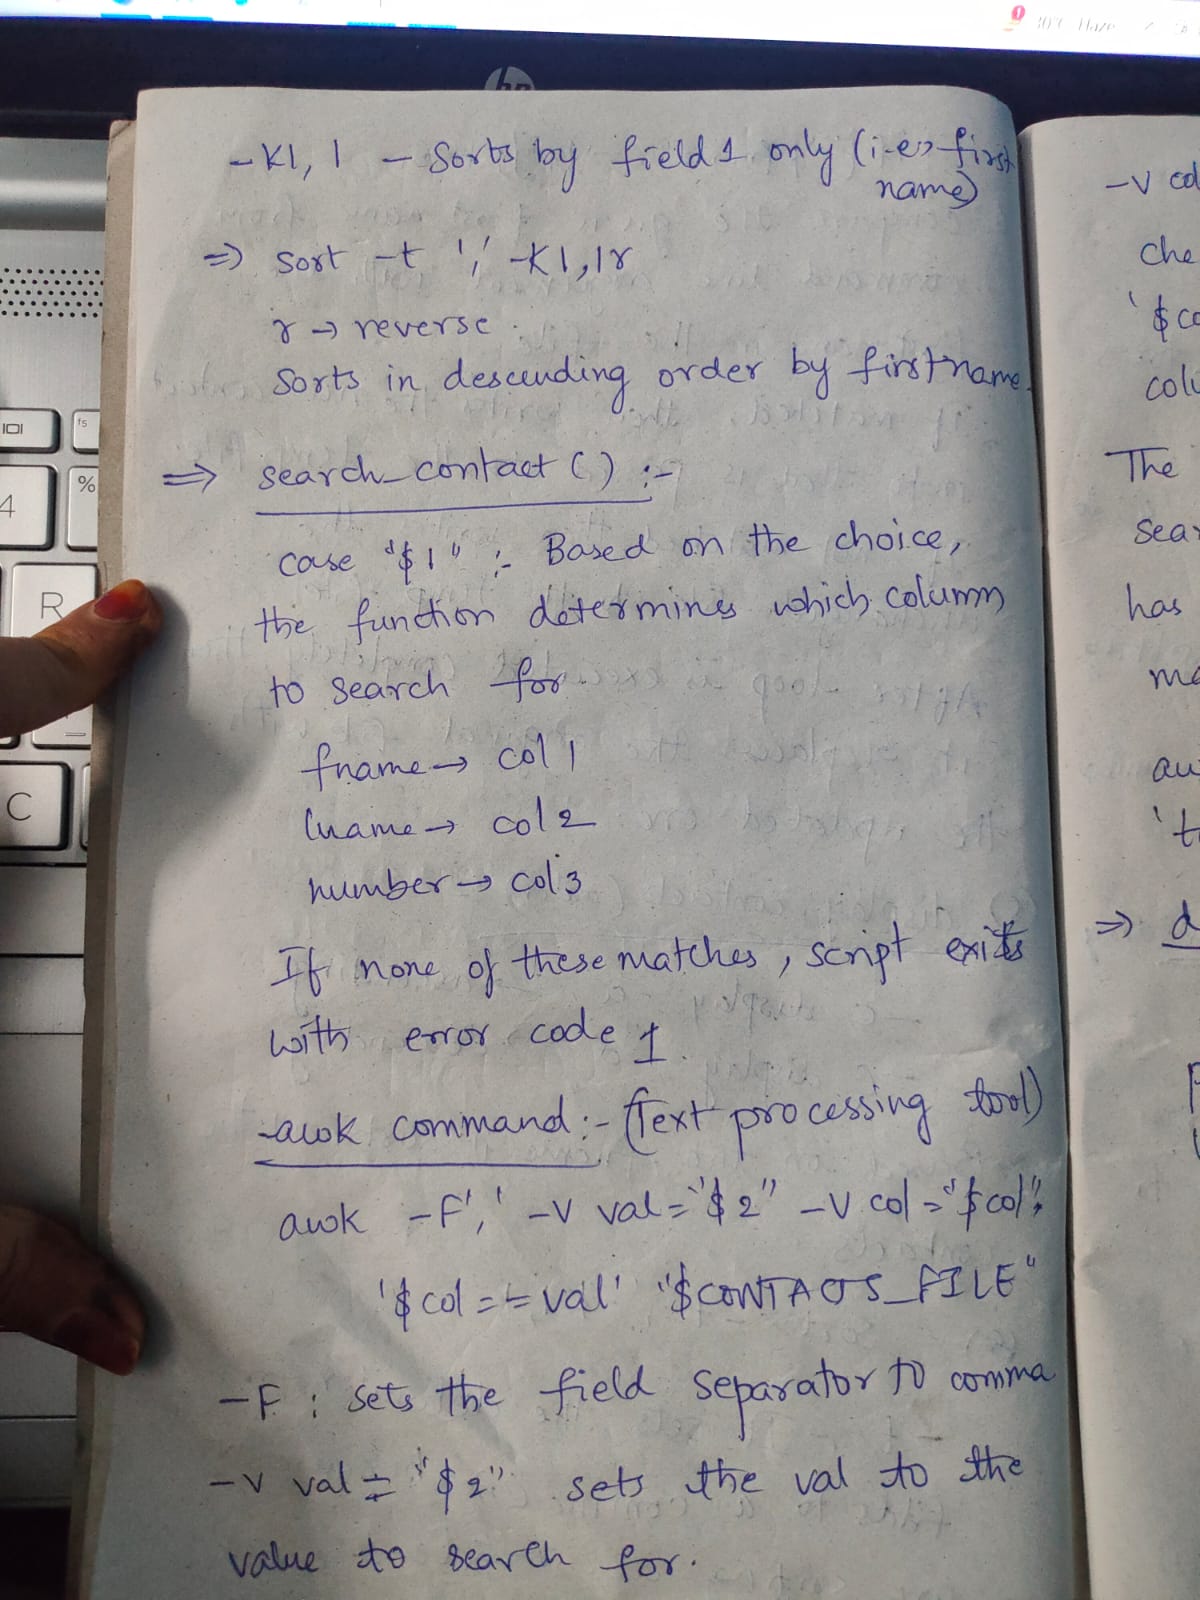 30°C Haze
hp
-k1, 1 - Sorts by field 1 only (i.e, first
name)
=> sort -t ',' -k1,1r
r → reverse
Sorts in descending order by firstname.
=> search_contact () :-
case "$1" :- Based on the choice,
the function determines which column
to search for.
fname → col 1
lname → col 2
number → col 3
If none of these matches, script exits
with error code 1.
-awk command :- (Text processing tool)
awk -F',' -v val="$2" -v col="$col"
'$col == val' "$CONTACTS_FILE"
-F : sets the field separator to comma
-v val = "$2" sets the val to the
value to search for.
-v col
che
'$co
colu
The
sear
has
ma
aw
't
=> d
f5
4
%
R
C